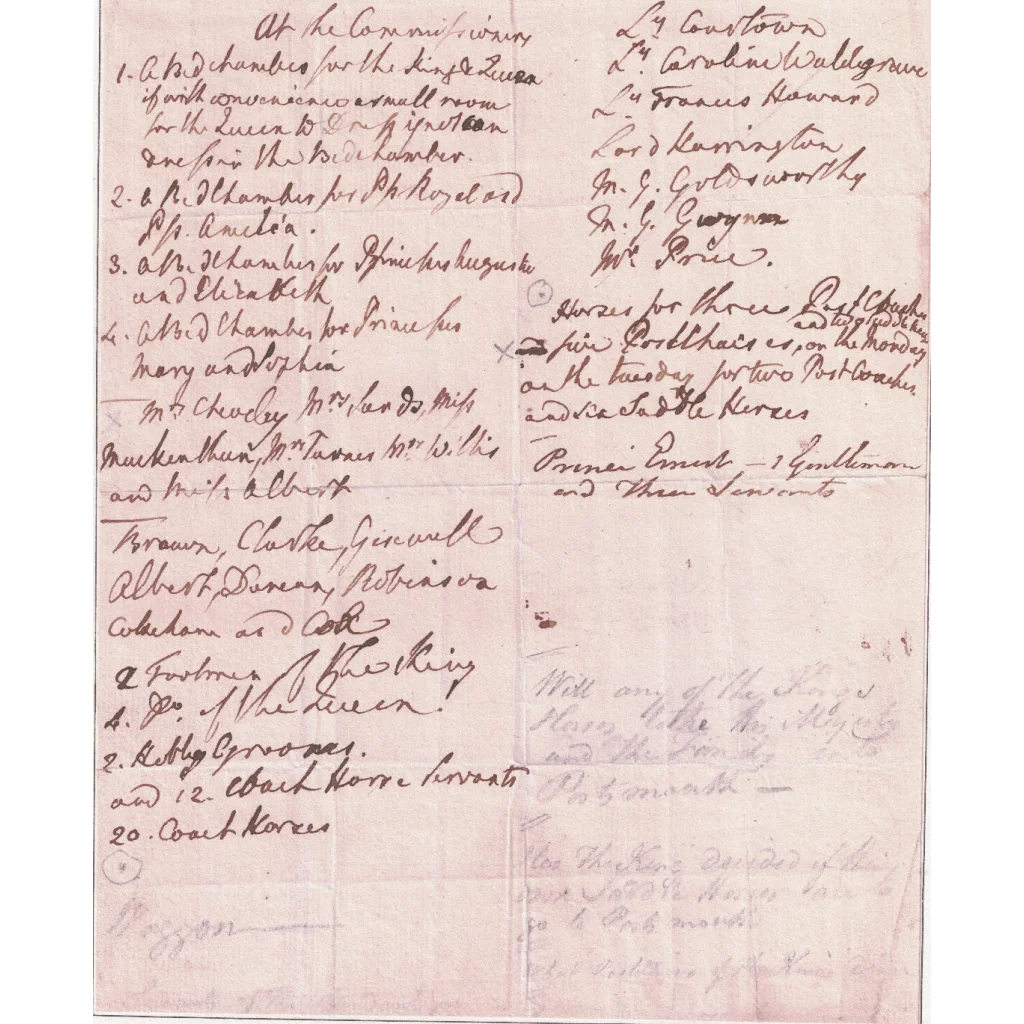 At the Commissioners
1. a Bedchamber for the King & Queen
if with convenience a small room
for the Queen to Dress if not can
dress in the Bedchamber.
2. a Bed Chamber for Pss. Royal and
Pss. Amelia.
3. a Bedchamber for Princesses Augusta
and Elizabeth
4. a Bed Chamber for Princesses
Mary and Sophia
Mrs. Cheveley Mrs. Sands, Miss
Mackenthun, Mrs. Turner Mrs. Willis
and Miss Albert
Brawn, Clarke, Giscwell
Albert, Duncan, Robinson
Cobeham and Cox
2 Footmen of the King
4. Do. of the Queen.
2. Hobby Grooms.
and 12. Coach Horse Servants
20. Coach Horses
Waggon
Ly. Courtown
Ly. Caroline Waldegrave
Ly. Frances Howard
Lord Harrington
M. G. Goldsworthy
M. G. Gwynn
Mr. Price.
Horses for three Post Coaches
and two saddle horses
five Postchaises, on the Monday
on the tuesday for two Post Coaches
and six Saddle Horses
Prince Ernest – 1 Gentleman
and three Servants
Will any of the Kings
Horses take His Majesty
and the Family into
Portsmouth —
Has The King decided if his
own Saddle Horses are to
go to Portsmouth
What of the King's